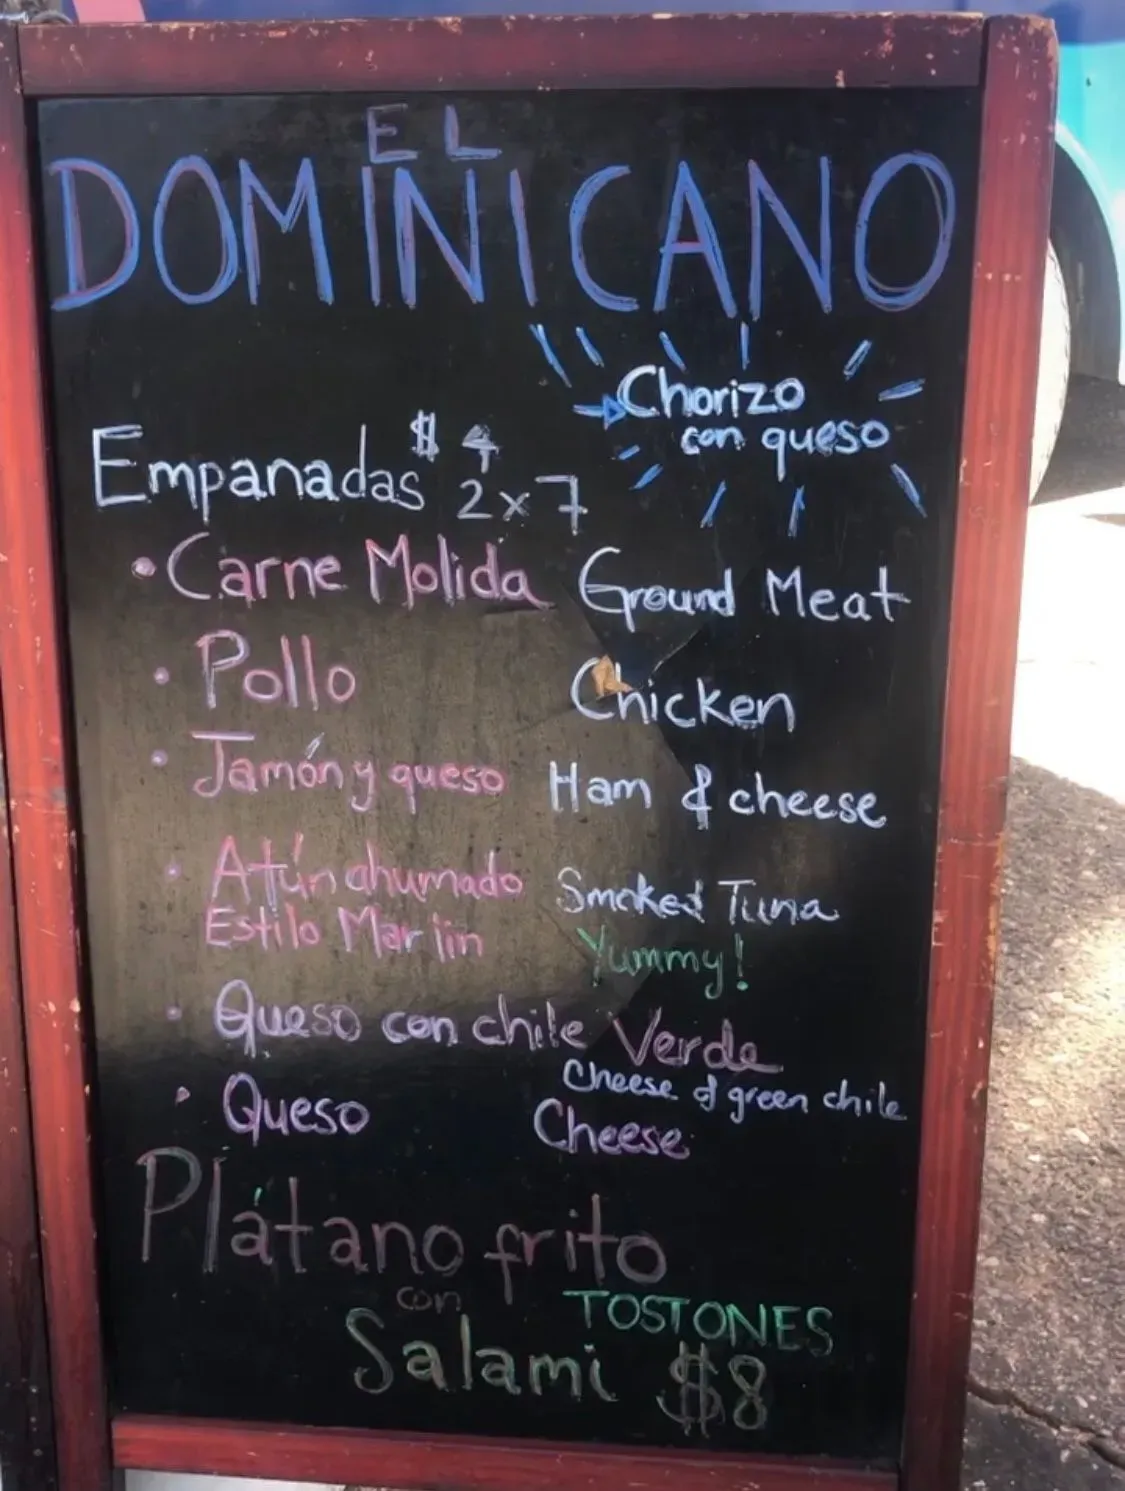 EL
DOMINICANO
Chorizo
con queso
Empanadas $4
2x7
• Carne Molida Ground Meat
• Pollo Chicken
• Jamón y queso Ham & cheese
• Atún ahumado Smoked Tuna
Estilo Marlin Yummy!
• Queso con chile Verde
Cheese & green chile
• Queso Cheese
Plátano frito
con TOSTONES
Salami $8